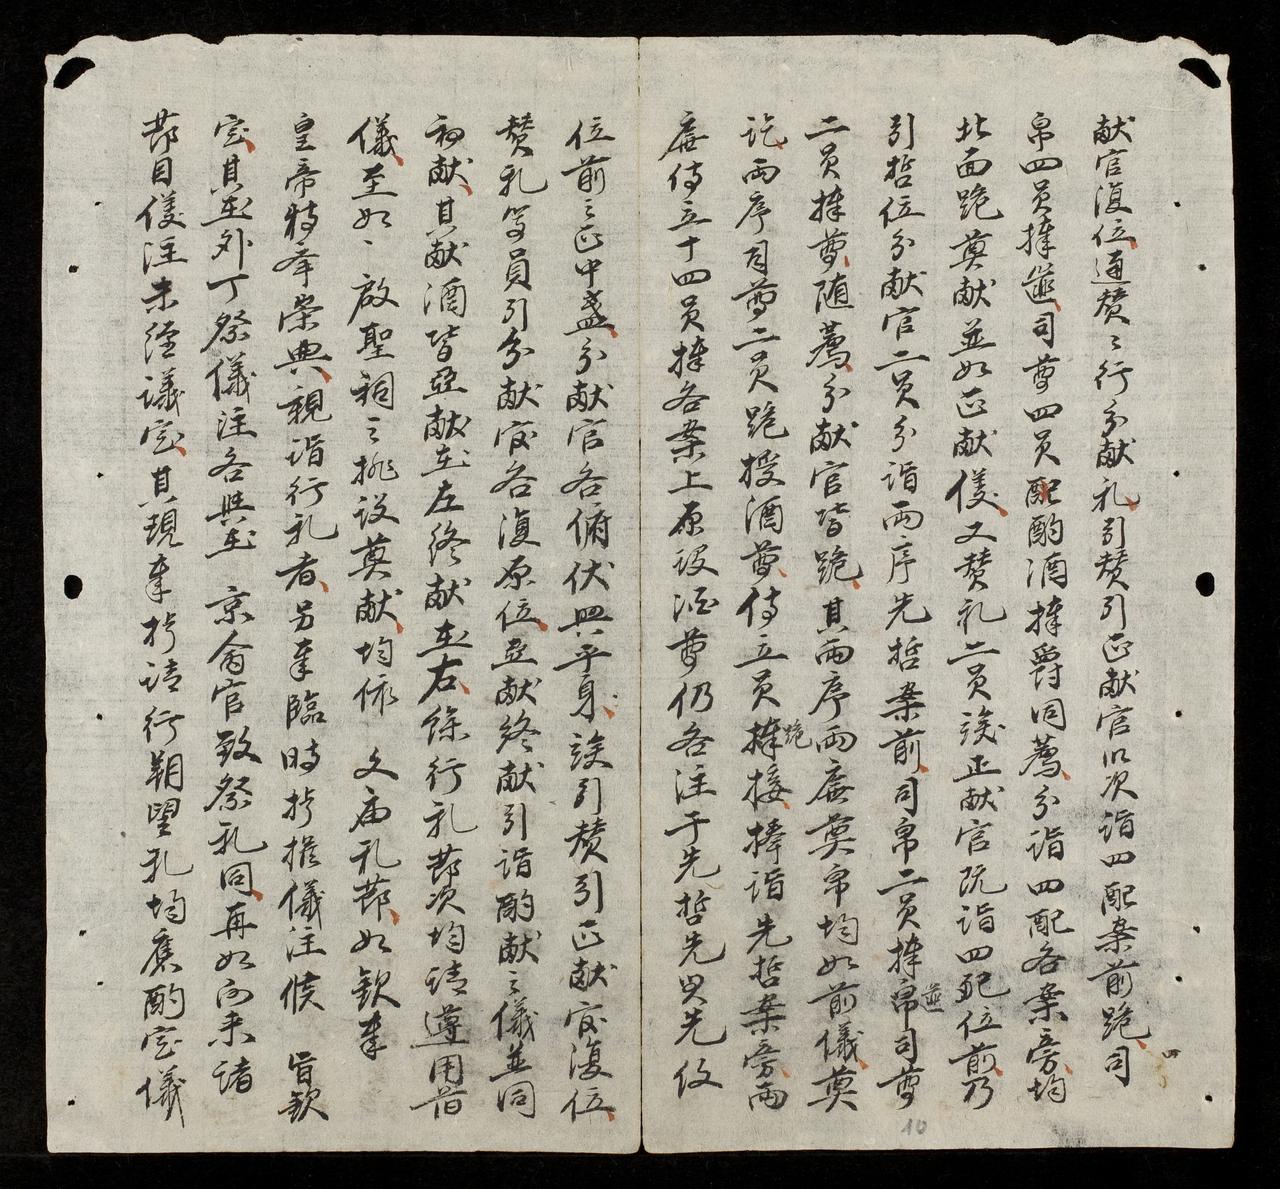 献官復位通賛〻行分献礼引賛引正献官以次詣四配案前跪司
帛四員捧篚司尊四員配酌酒捧爵同薦分詣四配各案旁均
北面跪奠献並如正献儀又賛礼二員俟正献官既詣四配位前乃
引哲位分献官二員分詣兩序先哲案前司帛二員捧帛篚司尊
二員捧尊随薦分献官皆跪其兩序兩廡奠帛均如前儀奠
訖兩序司尊二員跪授酒尊侍立員跪捧接捧詣先哲案旁兩
廡侍立十四員捧各案上原設酒尊仍各注于先哲先賢先儒
位前之正中盞分献官各俯伏興平身竣引賛引正献官復位
賛礼等員引分献官各復原位亞献終献引詣酌献之儀並同
初献其献酒皆亞献在左終献在右餘行礼節次均請遵用舊
儀至如〻啟聖祠之排設奠献均依 文庙礼節如欽奉
皇帝特奉崇典親詣行礼者另奉臨時拟擬儀注候 旨欽
定其在外丁祭儀注各與在 京禽官致祭礼同再如向来諸
節目儀注未經議定其現奉拟請行朔望礼均應酌定儀